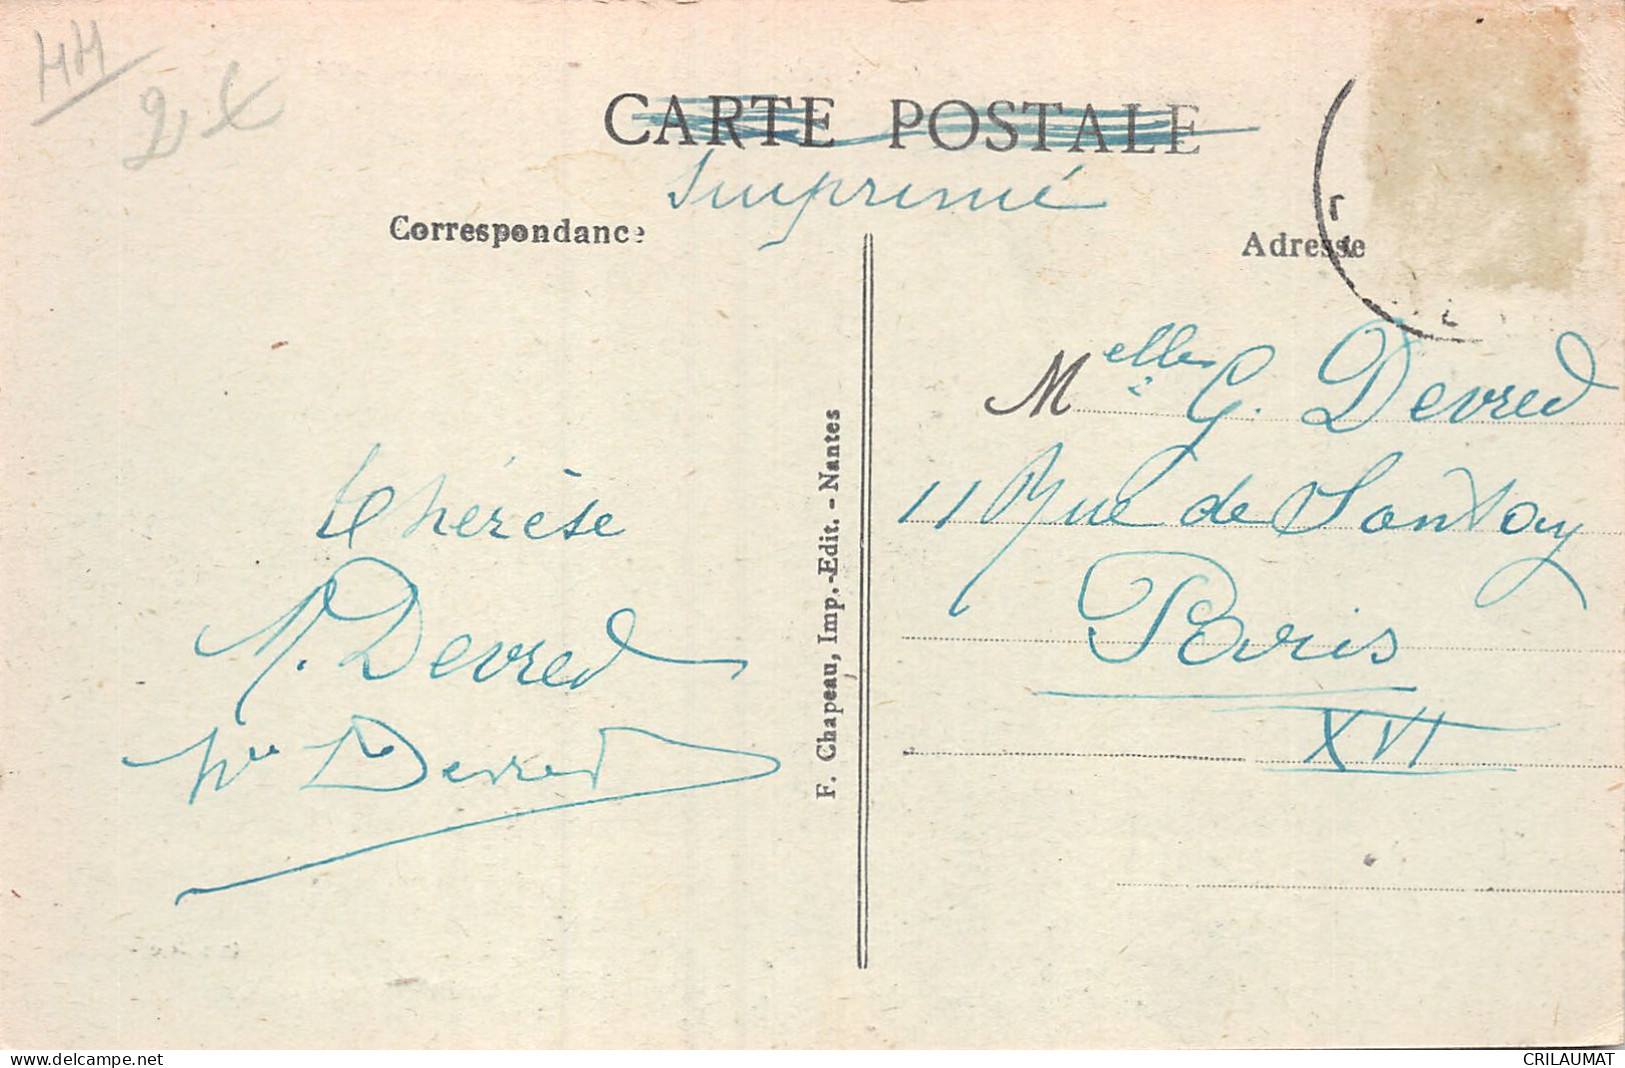 HH
2
CARTE POSTALE
Imprimé
Correspondance
Adresse
Melle G. Devred
11 Rue de Sontoy
Paris
XVI
thérèse
Devred
Devred
F. Chapeau, Imp.-Edit. - Nantes
www.delcampe.net
CRILAUMAT